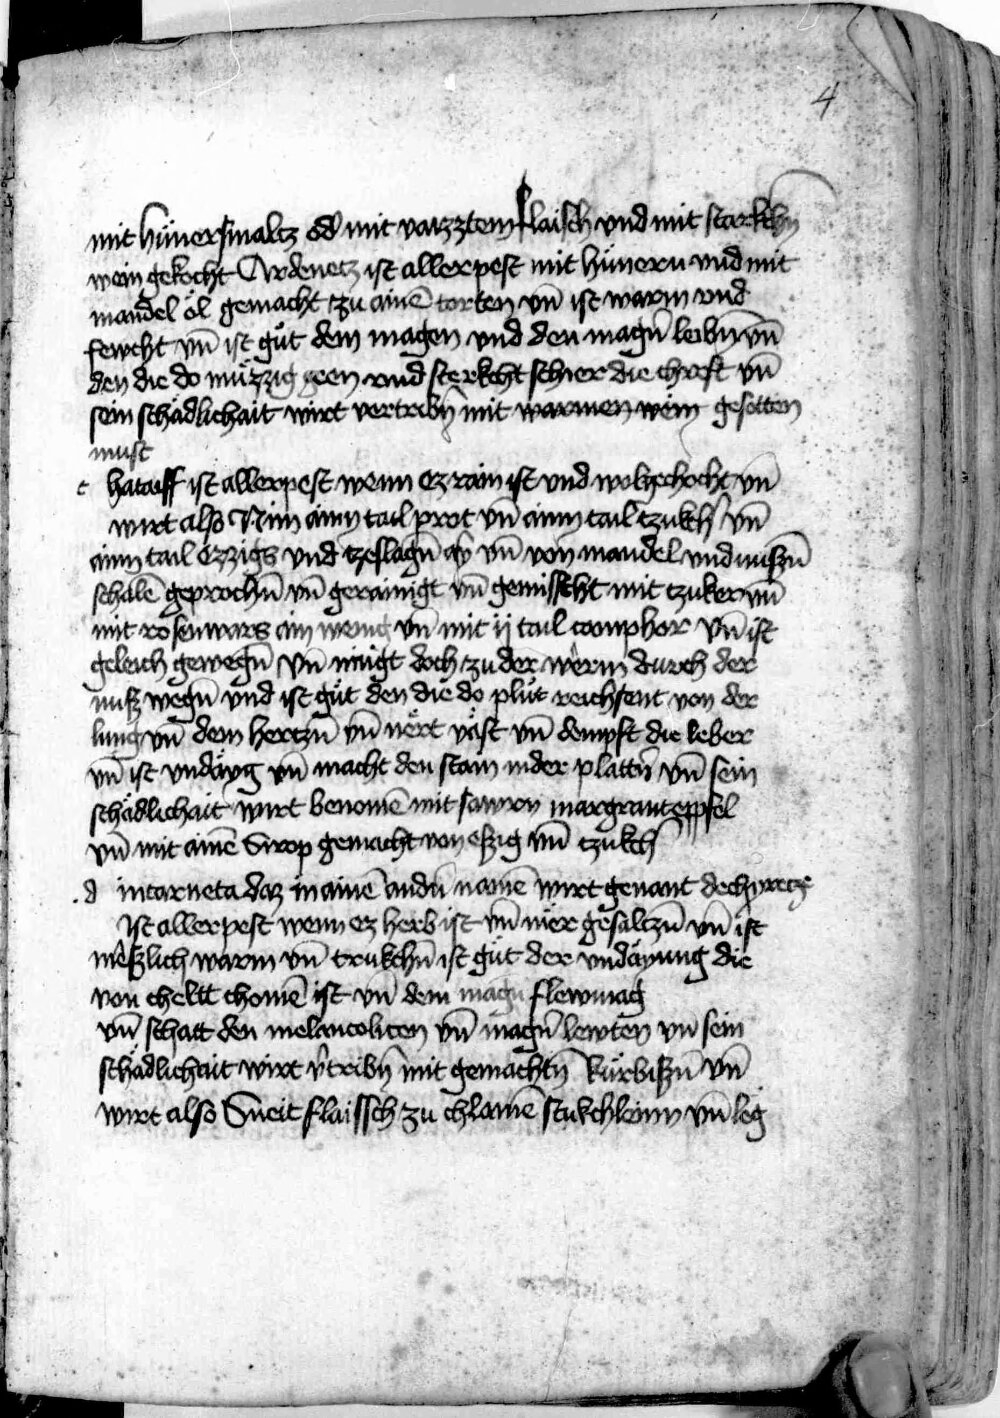 4
mit hünersmaltz od' mit vaizztem flaisch vnd mit starkchn̄
wein gekocht Ardenetz ist allerpest mit hünern vnd mit
mandel öl gemacht tzu ainē torten vn̄ ist warm vnd
fewcht vn̄ ist gůt dem magen vnd den magn̄ leibn̄ vn̄
den die do müzzig geen vnd sterkcht schier die chraft vn̄
sein schädlichait wirt vertribn̄ mit warmen wein gesotten
must
c hataiff ist allerpest wenn ez rain ist vnd wolgechocht vn̄
wirt also Nim ainn tail prot vn̄ ainn tail tzukch' vn̄
ainn tail ezzigs vnd tzeslagn̄ ay' vn̄ von mandel vnd nuszn̄
schalē geprochn̄ vn̄ gerainigt vn̄ gemisscht mit tzuker vn̄
mit rosenwars ain wenig vn̄ mit ij tail comphor vn̄ ist
geleich gewegn̄ vn̄ naigt doch tzu der werm durch der
nusz wegn̄ vnd ist gůt den die do plůt reichsent von der
lung vn̄ dem hertzn̄ vn̄ nert väst vn̄ dempft die leber
vn̄ ist vndäyg vn̄ macht den stain in der plattn̄ vn̄ sein
schädlichait wirt benomē mit sawrn margrantepfel
vn̄ mit ainē Sirop gemacht von eszig vn̄ tzukch'
. d incarneta daz in ainē andn̄ namē wirt genant dechyretze
Ist allerpest wenn ez herb ist vn̄ nier gesaltzn̄ vn̄ ist
meszlich warm vn̄ trukchn̄ ist gůt der vndäyung die
von cheltt chomē ist vn̄ dem magn̄ flewmag
vn̄ schatt den melancolicen vn̄ magn̄ lewten vn̄ sein
schädlichait wirt v'tribn̄ mit gemachtn̄ kürbiszn̄ vn̄
wirt also Sneit flaissch zu chlainē stukchleinn vn̄ leg